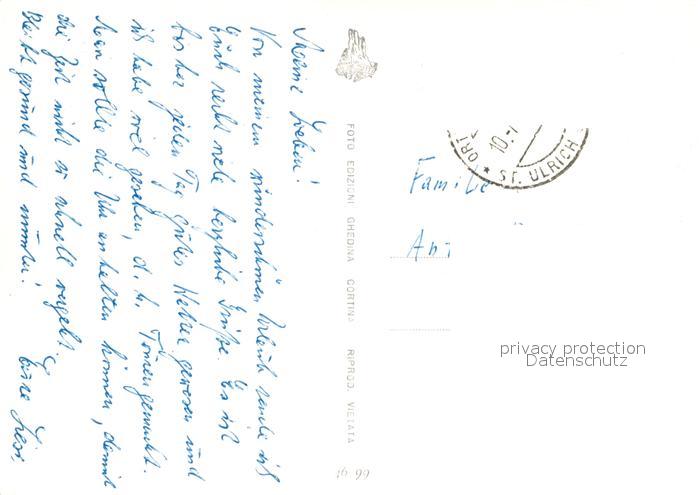 Meine Lieben!
Von meinem wunderschönen Urlaub sende ich
Euch recht viele herzliche Grüße. Es ist
bisher jeden Tag gutes Wetter gewesen und
ich habe viel gesehen, d. h. Touren gemacht.
Man sollte die Uhr anhalten können, damit
die Zeit nicht so schnell vergeht.
Bleibt gesund und munter! Eure
FOTO EDIZIONI GHEDINA CORTINA RIPROD. VIETATA
ORT * ST. ULRICH
10.
Familie
An
privacy protection
Datenschutz